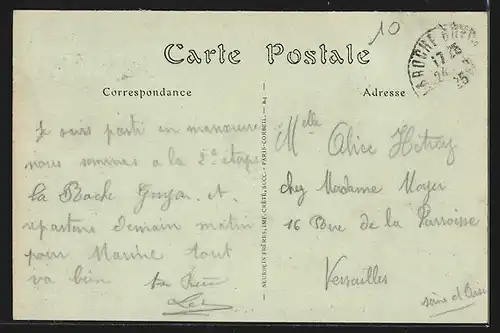 10
Carte Postale
Correspondance
Adresse
Je suis parti en manœuvre
nous sommes a la 2e étape
la Roche Guyon et
repartons demain matin
pour Marine tout
va bien ton Frère
Mlle Alice
chez Madame Mayer
16 Rue de la Parroisse
Versailles
seine et Oise
NEURDEIN FRÈRES, IMP.-CRÉTÉ, SUCC. - PARIS-CORBEIL
LAROCHE GUYON
17
24
25